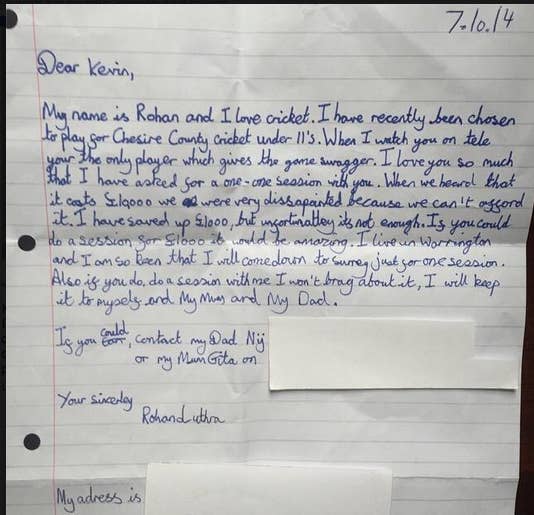 7.10.14
Dear Kevin,
My name is Rohan and I love cricket. I have recently been chosen
to play for Chesire County cricket under 11's. When I watch you on tele
your the only player which gives the game swagger. I love you so much
that I have asked for a one-one session with you. When we heard that
it costs £19000 we were very dissapointed because we can't afford
it. I have saved up £1000, but unfortinatley its not enough. If you could
do a session for £1000 it would be amazing. I live in Warrington
and I am so keen that I will come down to surrey just for one session.
Also if you do, do a session with me I won't brag about it, I will keep
it to myself and My Mum and My Dad.
If you could, contact my Dad Nij
or my Mum Gita on
Your sincerley
Rohan Luthra
My adress is